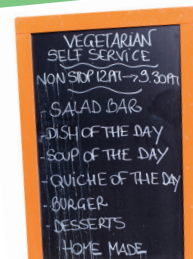 VEGETARIAN
SELF SERVICE
NON STOP 12PM→9.30PM
- SALAD BAR
- DISH OF THE DAY
- SOUP OF THE DAY
- QUICHE OF THE DAY
- BURGER
- DESSERTS
HOME MADE